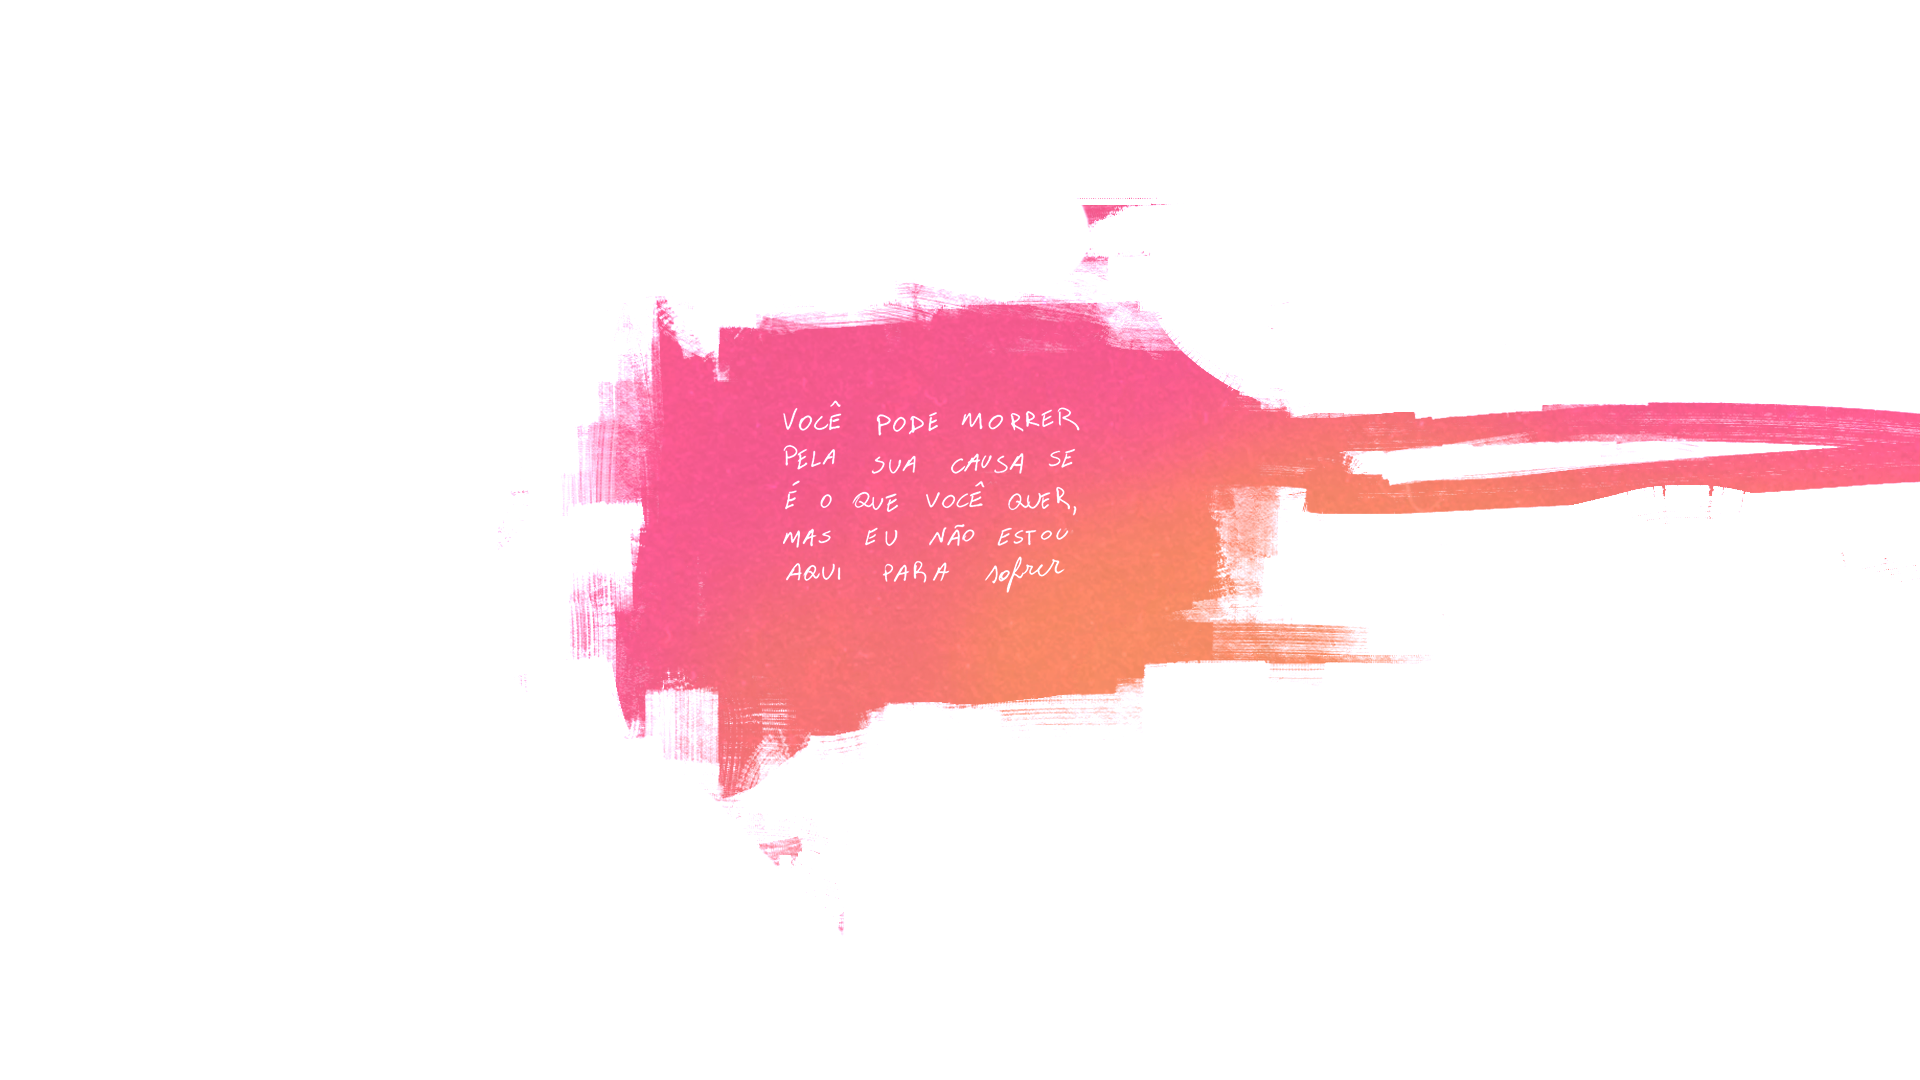 VOCÊ PODE MORRER
PELA SUA CAUSA SE
É O QUE VOCÊ QUER,
MAS EU NÃO ESTOU
AQUI PARA sofrer